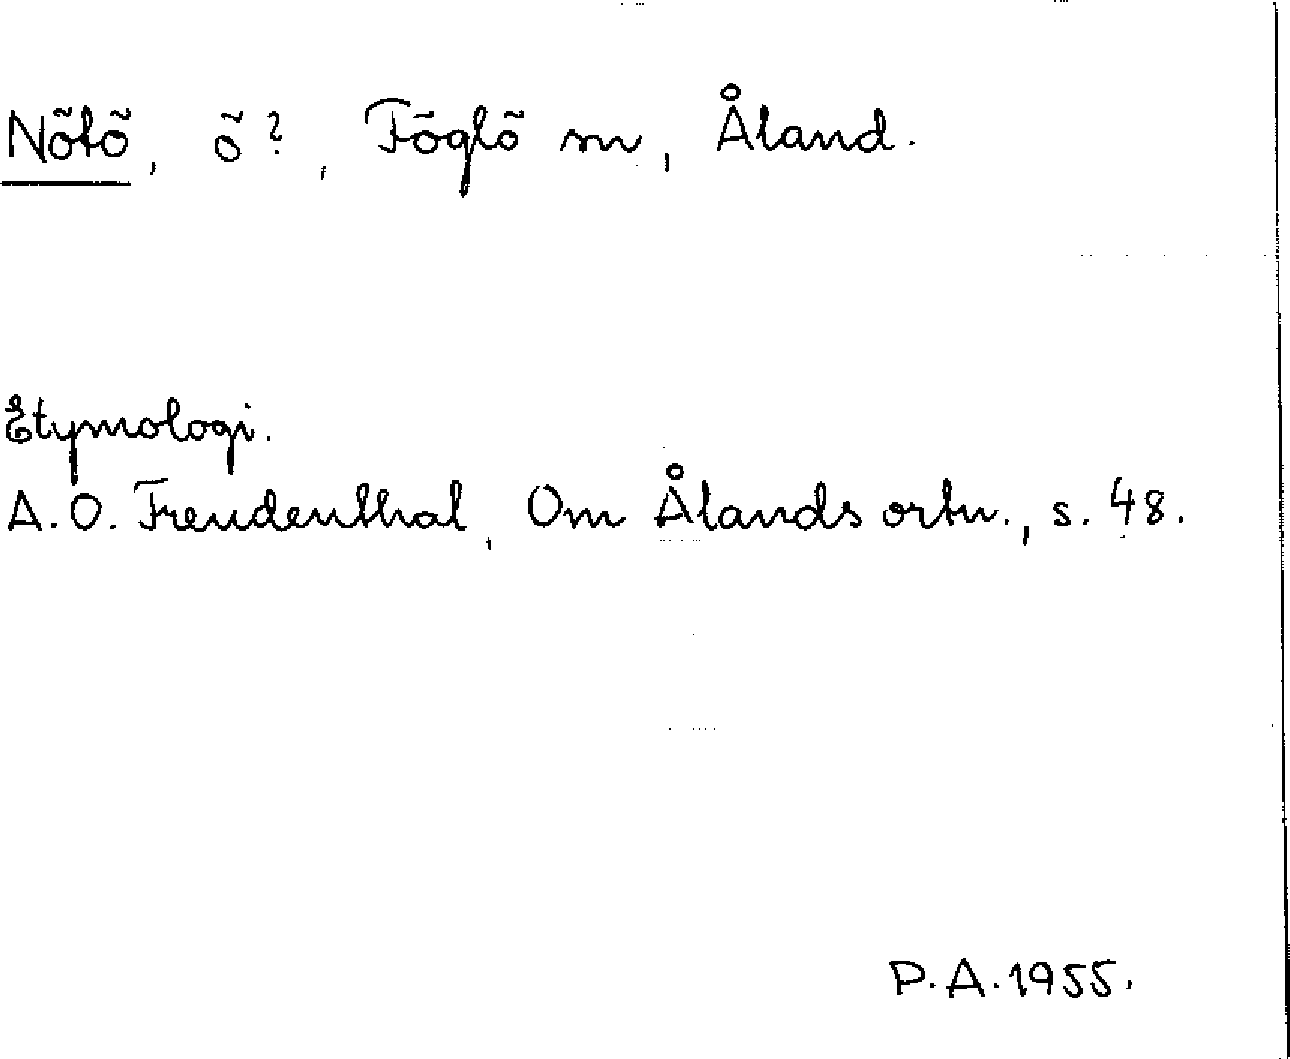 Nötö, ö?, Föglö sn, Åland.
Etymologi.
A.O. Freudenthal, Om Ålands ortn., s. 48.
P.A. 1955.